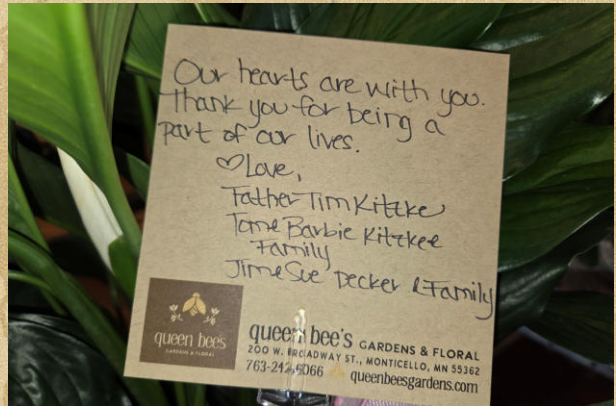 Our hearts are with you.
Thank you for being a
part of our lives.
♡Love,
Father Tim Kitzke
Tom & Barbie Kitzke &
Family
Jim & Sue Decker & Family
queen bee's
GARDENS & FLORAL
queen bee's GARDENS & FLORAL
200 W. BROADWAY ST., MONTICELLO, MN 55362
queenbeesgardens.com